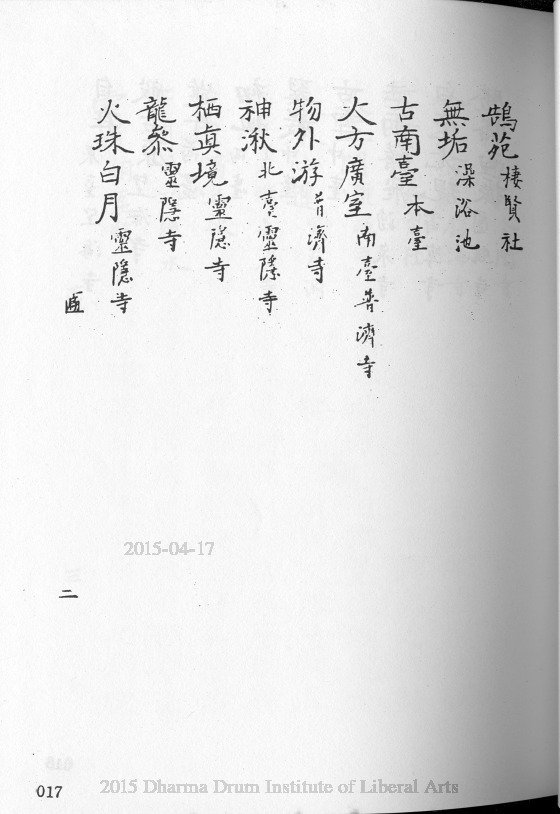 鵠苑 棲賢社
無垢 澡浴池
古南臺 本臺
大方廣室 南臺普濟寺
物外游 普濟寺
神湫 北臺靈隱寺
栖真境 靈隱寺
龍參 靈隱寺
火珠白月 靈隱寺
二
2015-04-17
017
2015 Dharma Drum Institute of Liberal Arts